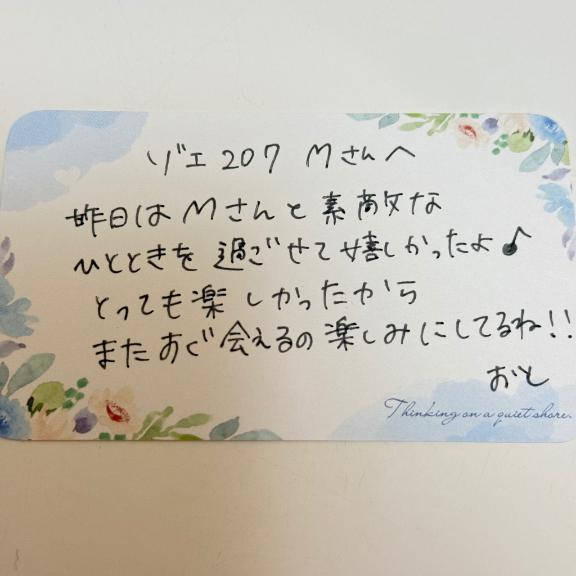 ゾエ207 Mさんへ
昨日はMさんと素敵な
ひとときを過ごせて嬉しかったよ♪
とっても楽しかったから
またすぐ会えるの楽しみにしてるね!!
おと
Thinking on a quiet shore.